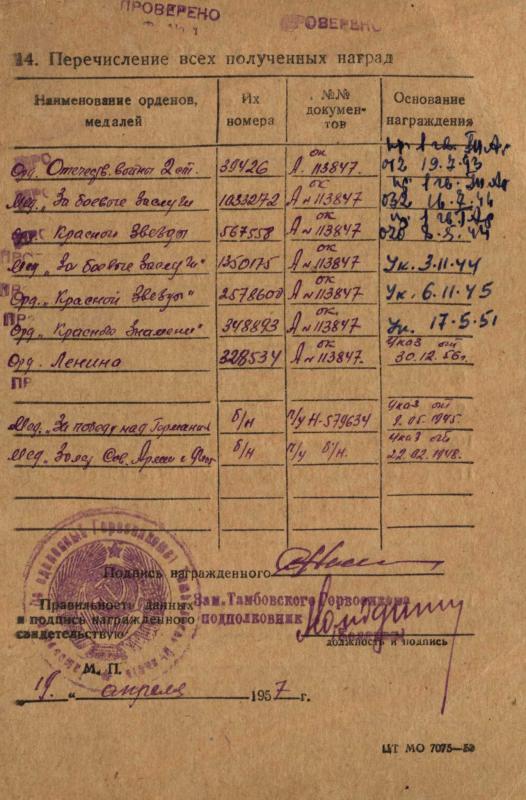 ПРОВЕРЕНО
ПРОВЕРЕНО
14. Перечисление всех полученных наград
Наименование орденов, медалей
Их номера
№№ документов
Основание награждения
Орд. Отечеств. войны 2 ст. 39426 А. ок 113847. 012 19.7.43
Мед. „За боевые заслуги 1033272 А ок № 113847 032 16.2.44
Красной Звезды 567558 А ок № 113847 028
Мед „За боевые заслуги" 1350175 А ок № 113847. Ук. 3.11.44
Орд. „Красной Звезды" 2578600 А ок № 113847 Ук. 6.11.45
Орд „Красного Знамени" 348893 А ок № 113847 Ук. 17.5.51
Орд. Ленина 328534 А ок № 113847. Указ от 30.12.56г.
Мед. „За победу над Германией б/н п/у Н-579634 Указ от 9.05.1945.
Мед. Сов. Армии и Флот б/н п/у б/н. Указ от 22.02.1948.
Подпись награжденного
Правильность данных
и подпись награжденного
свидетельствую
Зам. Тамбовского Горвоенкома
ПОДПОЛКОВНИК
должность и подпись
М. П.
19 „ апреля 1957 г.
ЦТ МО 7075—50